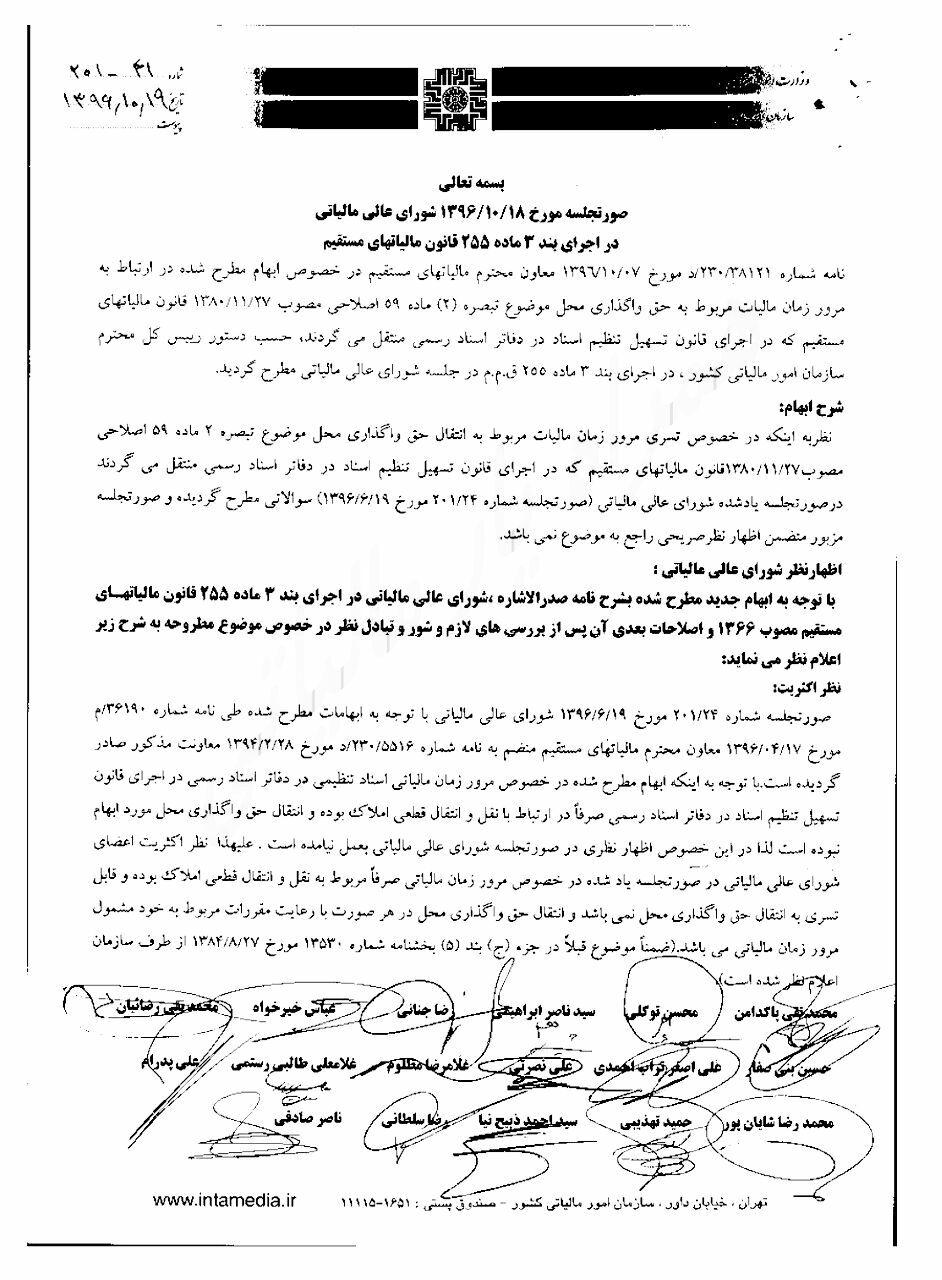 شماره ۲۰۱-۳۱
تاریخ ۱۳۹۶/۱۰/۱۹
پیوست
وزارت
سازمان
بسمه تعالی
صورتجلسه مورخ ۱۳۹۶/۱۰/۱۸ شورای عالی مالیاتی
در اجرای بند ۳ ماده ۲۵۵ قانون مالیاتهای مستقیم
نامه شماره ۲۳۰/۳۸۱۲۱/د مورخ ۱۳۹۶/۱۰/۰۷ معاون محترم مالیاتهای مستقیم در خصوص ابهام مطرح شده در ارتباط به
مرور زمان مالیات مربوط به حق واگذاری محل موضوع تبصره (۲) ماده ۵۹ اصلاحی مصوب ۱۳۸۰/۱۱/۲۷ قانون مالیاتهای
مستقیم که در اجرای قانون تسهیل تنظیم اسناد در دفاتر اسناد رسمی منتقل می گردند، حسب دستور رییس کل محترم
سازمان امور مالیاتی کشور ، در اجرای بند ۳ ماده ۲۵۵ ق.م.م در جلسه شورای عالی مالیاتی مطرح گردید.
شرح ابهام:
نظربه اینکه در خصوص تسری مرور زمان مالیات مربوط به انتقال حق واگذاری محل موضوع تبصره ۲ ماده ۵۹ اصلاحی
مصوب۱۳۸۰/۱۱/۲۷قانون مالیاتهای مستقیم که در اجرای قانون تسهیل تنظیم اسناد در دفاتر اسناد رسمی منتقل می گردند
درصورتجلسه یادشده شورای عالی مالیاتی (صورتجلسه شماره ۲۰۱/۲۴ مورخ ۱۳۹۶/۶/۱۹) سوالاتی مطرح گردیده و صورتجلسه
مزبور متضمن اظهار نظرصریحی راجع به موضوع نمی باشد.
اظهارنظر شورای عالی مالیاتی :
با توجه به ابهام جدید مطرح شده بشرح نامه صدرالاشاره ،شورای عالی مالیاتی در اجرای بند ۳ ماده ۲۵۵ قانون مالیاتهــای
مستقیم مصوب ۱۳۶۶ و اصلاحات بعدی آن پس از بررسی های لازم و شور و تبادل نظر در خصوص موضوع مطروحه به شرح زیر
اعلام نظر می نماید:
نظر اکثریت:
صورتجلسه شماره ۲۰۱/۲۴ مورخ ۱۳۹۶/۶/۱۹ شورای عالی مالیاتی با توجه به ابهامات مطرح شده طی نامه شماره ۳۶۱۹۰/م
مورخ ۱۳۹۶/۰۴/۱۷ معاون محترم مالیاتهای مستقیم منضم به نامه شماره ۲۳۰/۵۵۱۶/د مورخ ۱۳۹۴/۲/۲۸ معاونت مذکور صادر
گردیده است.با توجه به اینکه ابهام مطرح شده در خصوص مرور زمان مالیاتی اسناد تنظیمی در دفاتر اسناد رسمی در اجرای قانون
تسهیل تنظیم اسناد در دفاتر اسناد رسمی صرفاً در ارتباط با نقل و انتقال قطعی املاک بوده و انتقال حق واگذاری محل مورد ابهام
نبوده است لذا در این خصوص اظهار نظری در صورتجلسه شورای عالی مالیاتی بعمل نیامده است . علیهذا نظر اکثریت اعضای
شورای عالی مالیاتی در صورتجلسه یاد شده در خصوص مرور زمان مالیاتی صرفاً مربوط به نقل و انتقال قطعی املاک بوده و قابل
تسری به انتقال حق واگذاری محل نمی باشد و انتقال حق واگذاری محل در هر صورت با رعایت مقررات مربوط به خود مشمول
مرور زمان مالیاتی می باشد.(ضمناً موضوع قبلاً در جزء (ج) بند (۵) بخشنامه شماره ۱۳۵۳۰ مورخ ۱۳۸۴/۸/۲۷ از طرف سازمان
اعلام نظر شده است)
محمدتقی پاکدامن محسن توکلی سید ناصر ابراهیمی رضا جنانی عباس خیرخواه محمدتقی رضائیان
حسین بنی صفار علی اصغر تراب احمدی علی نصرتی غلامرضا مظلوم غلامعلی طالبی رستمی علی پدرام
محمد رضا شایان پور حمید تهذیبی سید احمد ذبیح نیا رضا سلطانی ناصر صادقی
تهران ، خیابان داور ، سازمان امور مالیاتی کشور - صندوق پستی : ۱۶۵۱-۱۱۱۱۵ www.intamedia.ir